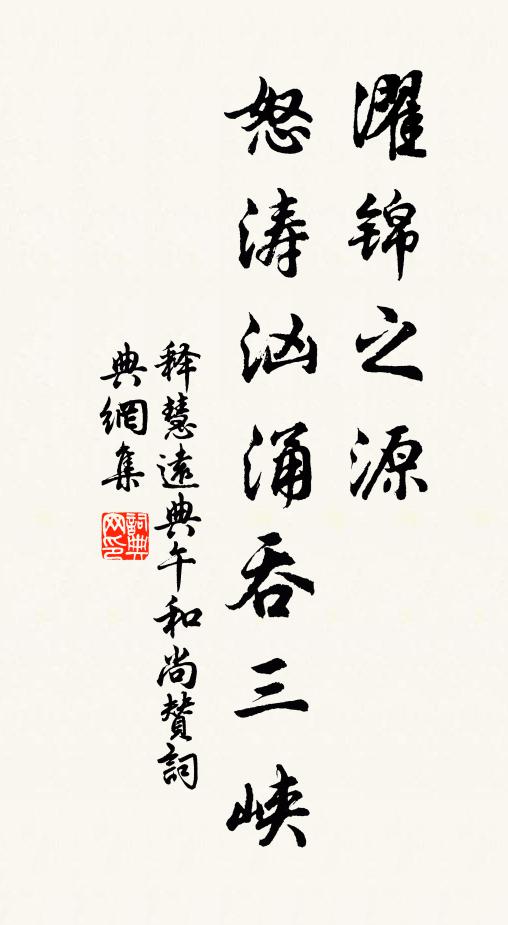 濯锦之源
怒涛汹涌吞三峡
释慧遠典午和尚贊詞
典網集
詞典
网印